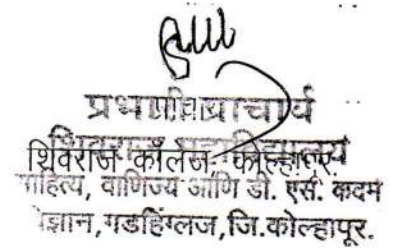 प्रभारी प्राचार्य
शिवराज कॉलेज कोल्हापूर
साहित्य, वाणिज्य आणि डी. एस. कदम
विज्ञान,गडहिंग्लज,जि.कोल्हापूर.